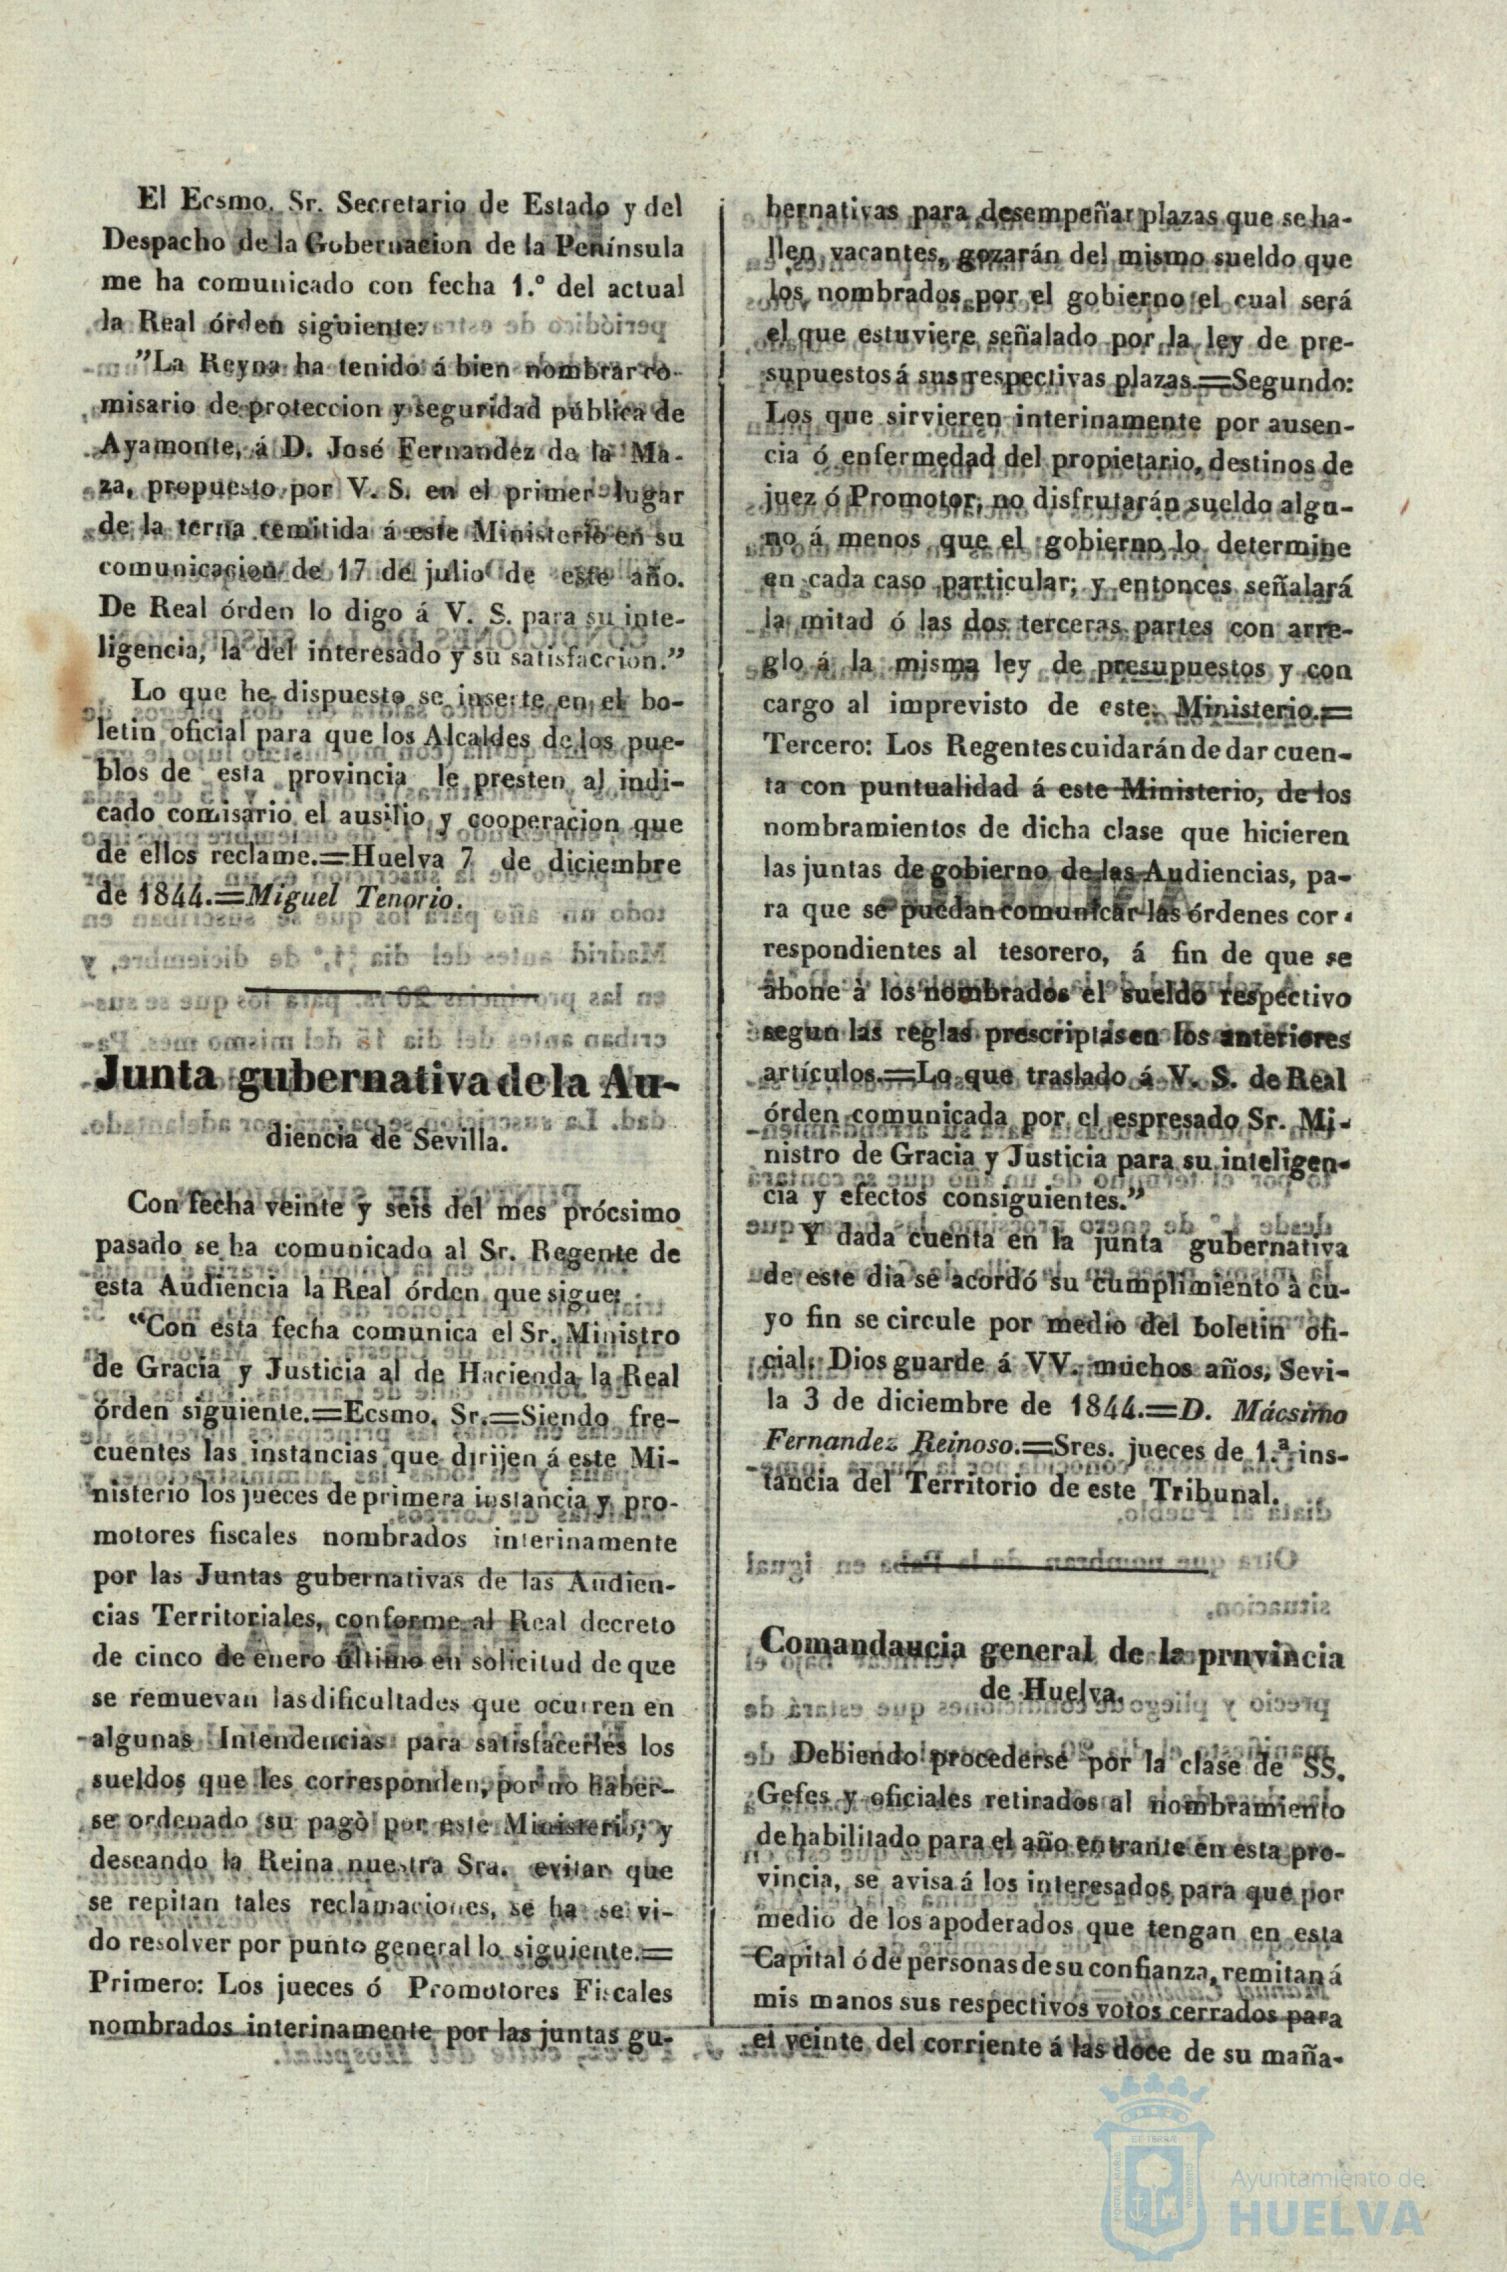 El Ecsmo. Sr. Secretario de Estado y del
Despacho de la Gobernacion de la Península
me ha comunicado con fecha 1.º del actual
la Real órden siguiente:
”La Reyna ha tenido á bien nombrar co-
misario de proteccion y seguridad pública de
Ayamonte, á D. José Fernandez de la Ma-
za, propuesto por V. S. en el primer lugar
de la terna remitida á este Ministerio en su
comunicacion de 17 de julio de este año.
De Real órden lo digo á V. S. para su inte-
ligencia, la del interesado y su satisfaccion.”
Lo que he dispuesto se inserte en el bo-
letin oficial para que los Alcaldes de los pue-
blos de esta provincia le presten al indi-
cado comisario el ausilio y cooperacion que
de ellos reclame.=Huelva 7 de diciembre
de 1844.=Miguel Tenorio.
Junta gubernativa de la Au-
diencia de Sevilla.
Con fecha veinte y seis del mes prócsimo
pasado se ha comunicado al Sr. Regente de
esta Audiencia la Real órden que sigue:
“Con esta fecha comunica el Sr. Ministro
de Gracia y Justicia al de Hacienda la Real
órden siguiente.=Ecsmo. Sr.=Siendo fre-
cuentes las instancias que dirijen á este Mi-
nisterio los jueces de primera instancia y pro-
motores fiscales nombrados interinamente
por las Juntas gubernativas de las Audien-
cias Territoriales, conforme al Real decreto
de cinco de enero último en solicitud de que
se remuevan las dificultades que ocurren en
algunas Intendencias para satisfacerles los
sueldos que les corresponden, por no haber-
se ordenado su pagò por este Ministerio; y
deseando la Reina nuestra Sra. evitar que
se repitan tales reclamaciones, se ha servi-
do resolver por punto general lo siguiente.=
Primero: Los jueces ó Promotores Fiscales
nombrados interinamente por las juntas gu-
bernativas para desempeñar plazas que se ha-
llen vacantes, gozarán del mismo sueldo que
los nombrados por el gobierno el cual será
el que estuviere señalado por la ley de pre-
supuestos á sus respectivas plazas.=Segundo:
Los que sirvieren interinamente por ausen-
cia ó enfermedad del propietario, destinos de
juez ó Promotor, no disfrutarán sueldo algu-
no á menos que el gobierno lo determine
en cada caso particular; y entonces señalará
la mitad ó las dos terceras partes con arre-
glo á la misma ley de presupuestos y con
cargo al imprevisto de este Ministerio.=
Tercero: Los Regentes cuidarán de dar cuen-
ta con puntualidad á este Ministerio, de los
nombramientos de dicha clase que hicieren
las juntas de gobierno de las Audiencias, pa-
ra que se puedan comunicar las órdenes cor-
respondientes al tesorero, á fin de que se
abone à los nombrados el sueldo respectivo
segun las reglas prescriptas en los anteriores
artículos.=Lo que traslado á V. S. de Real
órden comunicada por el espresado Sr. Mi-
nistro de Gracia y Justicia para su inteligen-
cia y efectos consiguientes.”
Y dada cuenta en la junta gubernativa
de este dia se acordó su cumplimiento à cu-
yo fin se circule por medio del boletin ofi-
cial. Dios guarde á VV. muchos años, Sevi-
la 3 de diciembre de 1844.=D. Mácsimo
Fernandez Reinoso.=Sres. jueces de 1.ª ins-
tancia del Territorio de este Tribunal.
Comandaucia general de la prnvincia
de Huelva.
Debiendo procederse por la clase de SS.
Gefes y oficiales retirados al nombramiento
de habilitado para el año entrante en esta pro-
vincia, se avisa á los interesados para que por
medio de los apoderados que tengan en esta
Capital ó de personas de su confianza, remitan á
mis manos sus respectivos votos cerrados para
el veinte del corriente á las doce de su maña-
Ayuntamiento de
HUELVA